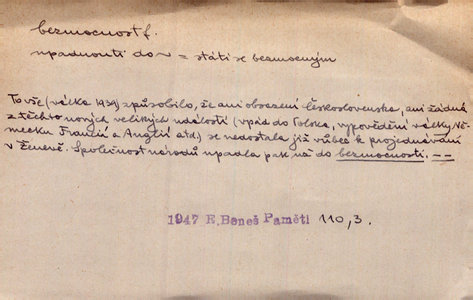 bezmocnost f.
upadnouti do ~ = státi se bezmocným
To vše (válka 1939) způsobilo, že ani obsazení Československa, ani žádná
z těchto nových velikých událostí (vpád do Polska, vypovědění války Ně-
mecku Francií a Anglií atd.) se nedostala již vůbec k projednávání
v Ženevě. Společnost národů upadla pak už do bezmocnosti. --
1947 E. Beneš Paměti 110,3.